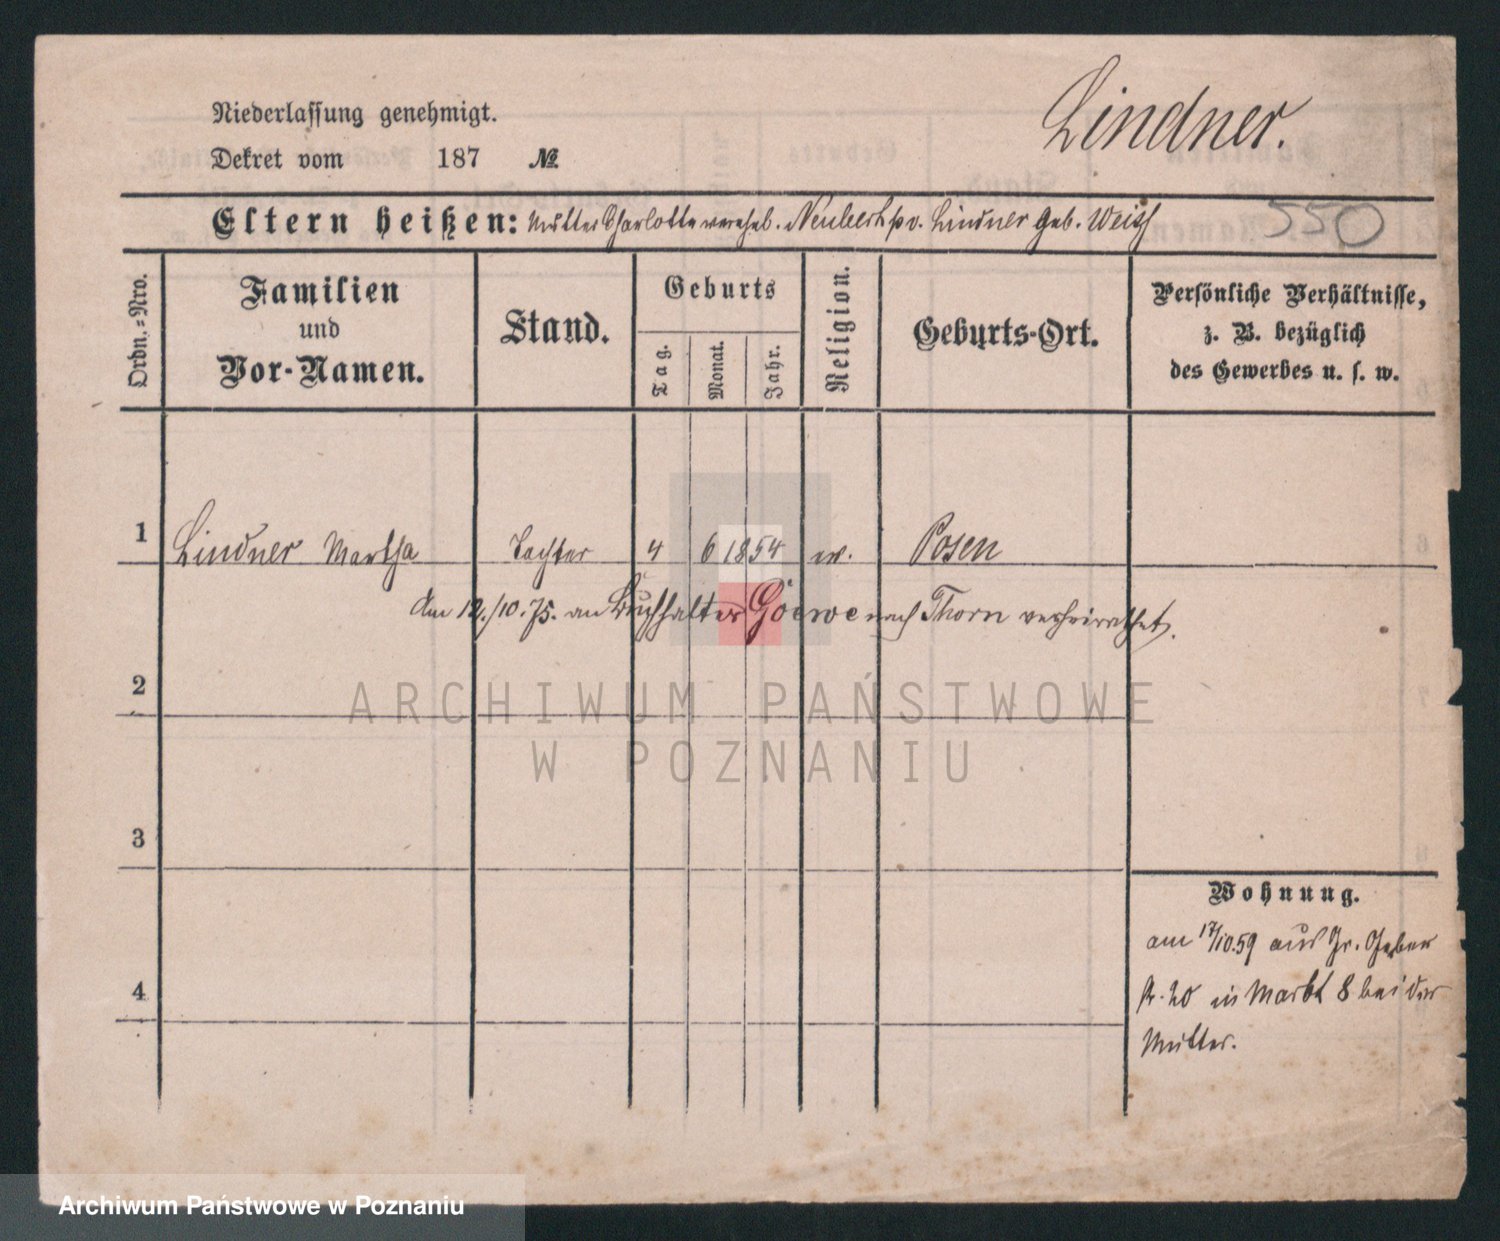 Niederlassung genehmigt.
Lindner.
Dekret vom 187 №
Eltern heißen: Mutter Charlotte verehel. Neubert pv. Lindner geb. Weiß
550
Ordn.=Nro.
Familien und Vor-Namen.
Stand.
Geburts
Tag. Monat. Jahr.
Religion.
Geburts-Ort.
Persönliche Verhältnisse, z. B. bezüglich des Gewerbes u. s. w.
1 Lindner Martha Tochter 4 6 1854 ev. Posen
Am 12./10. 75. an Buchhalter Goewe nach Thorn verheirathet.
2
ARCHIWUM PAŃSTWOWE
W POZNANIU
3
Wohnung.
am 17/10.59 aus Gr. Gerber
4
str. 20 in Markt 8 bei der
Mutter.
Archiwum Państwowe w Poznaniu